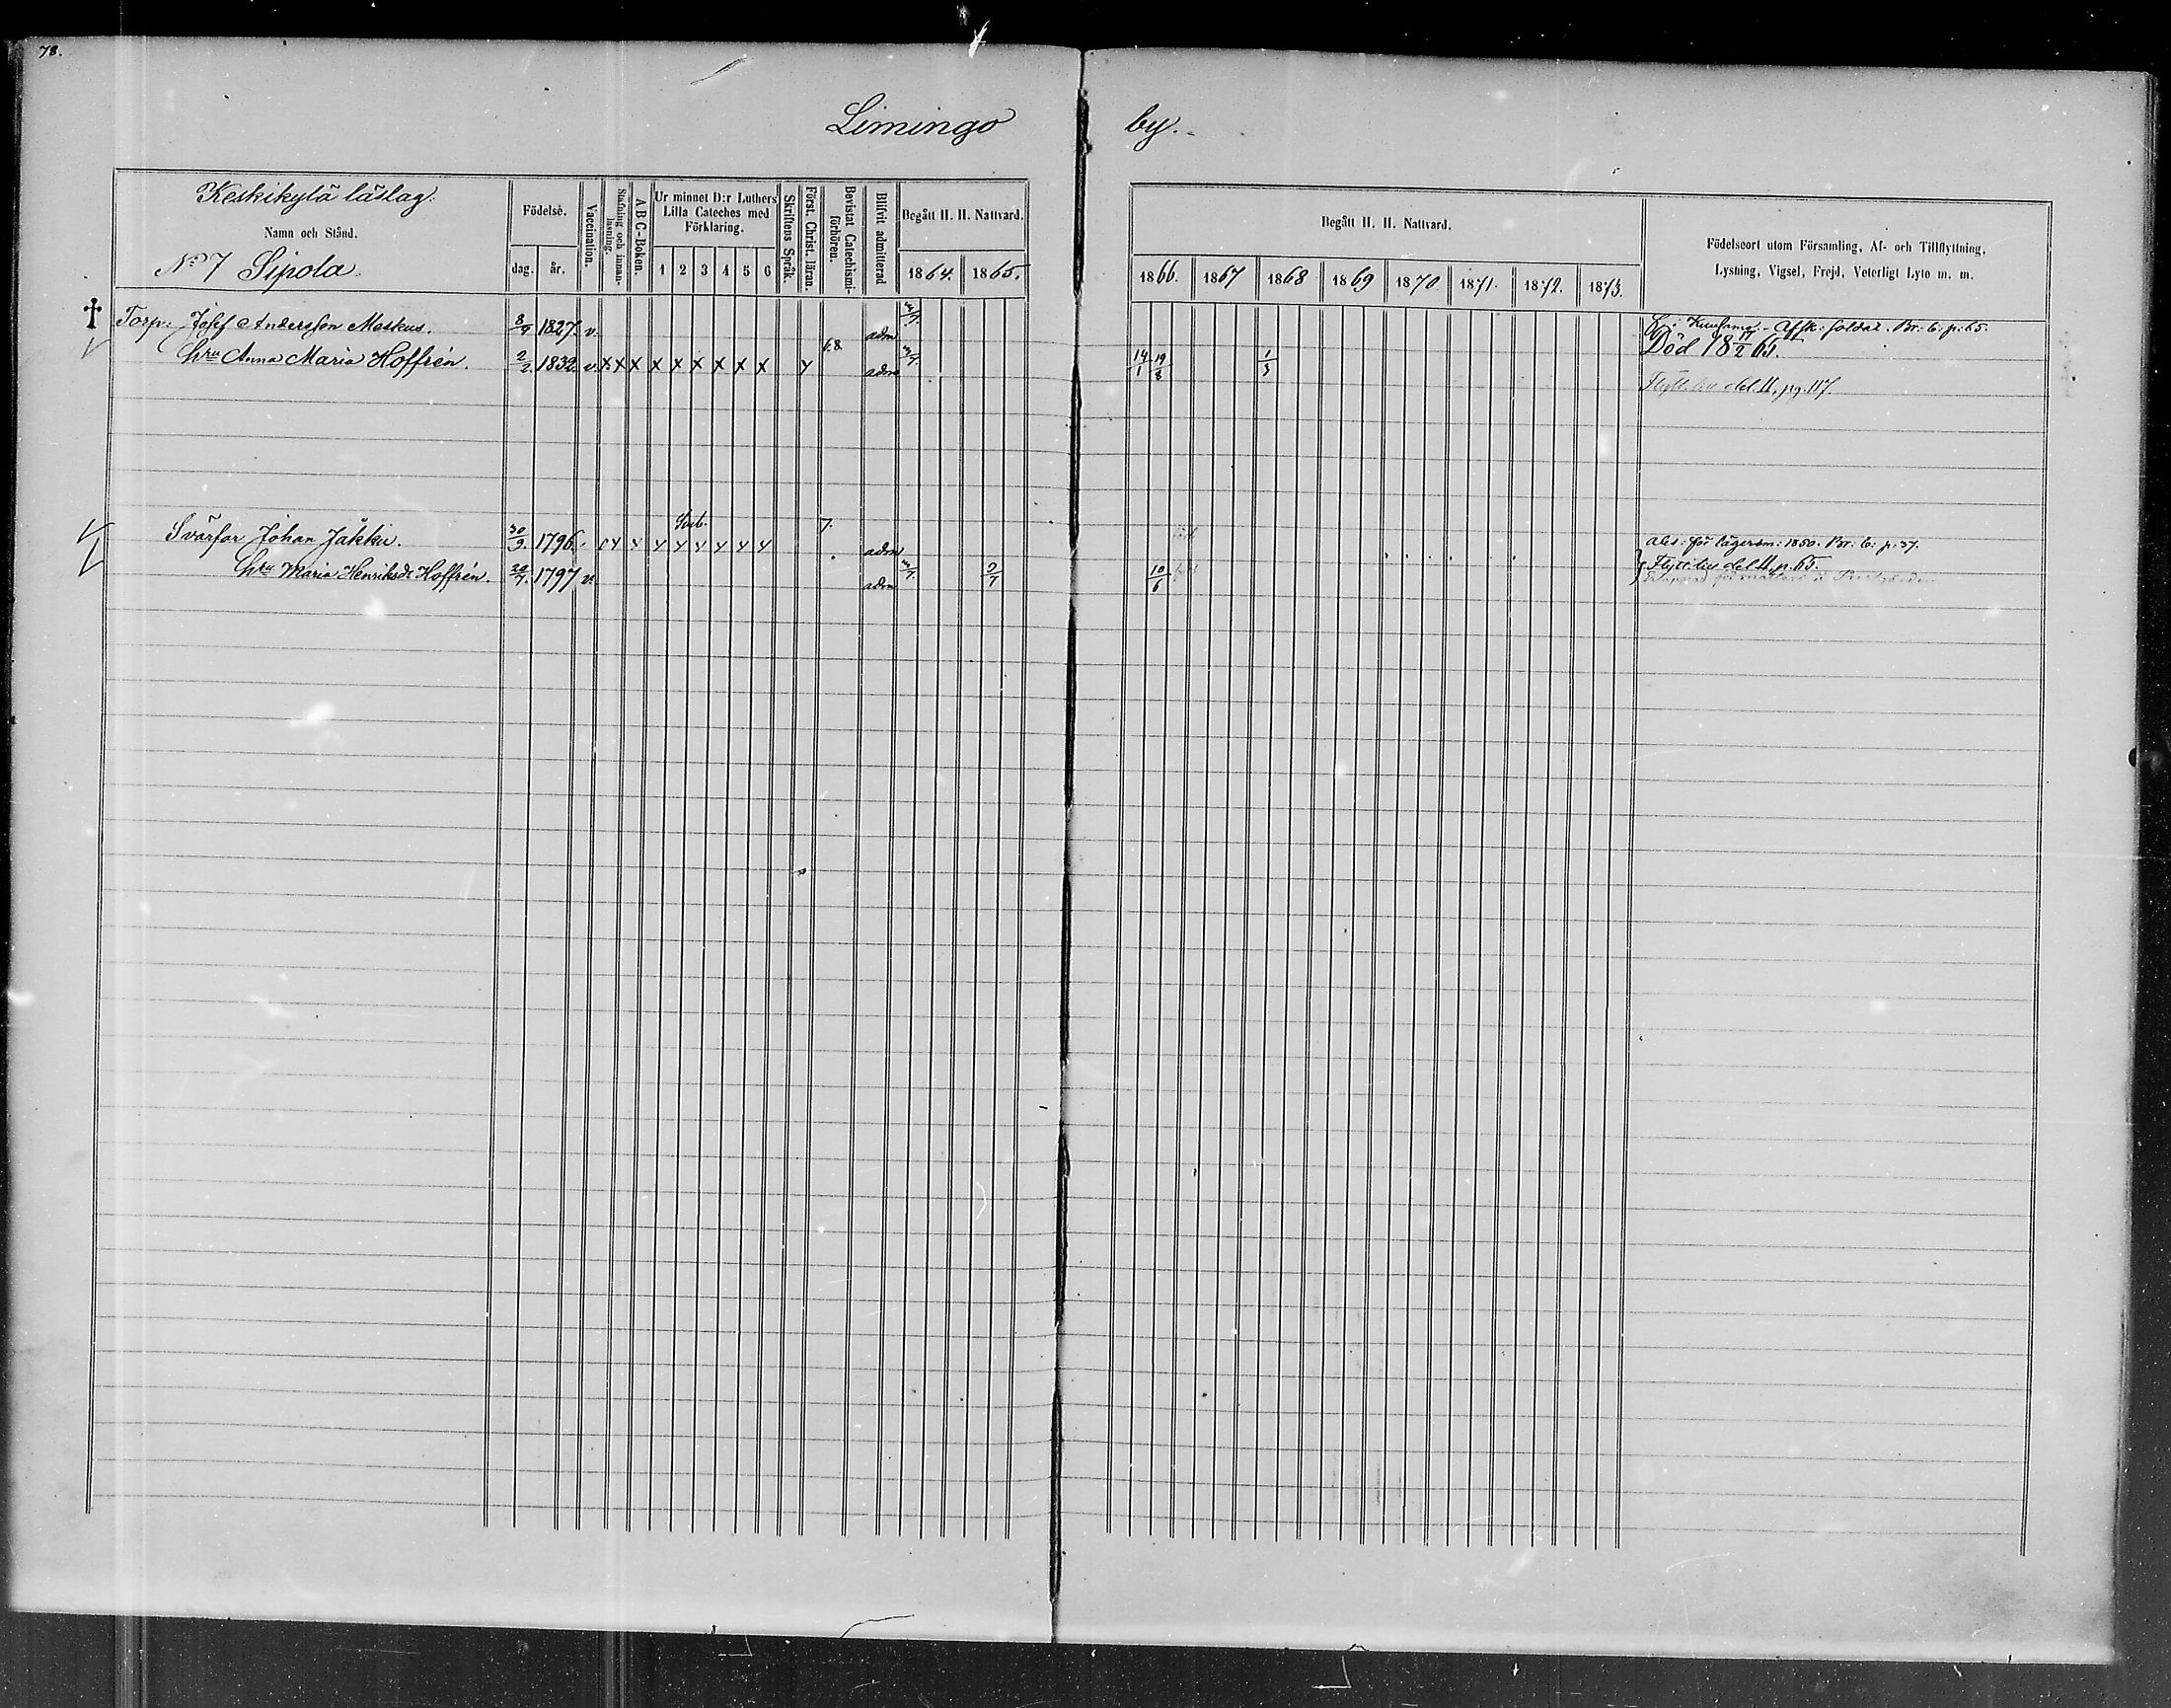 78.
Limingo by.
Keskikylä läslag.
Namn och Stånd.
No 7 Sipola.
Födelse.
dag. år.
Vaccination.
Stafning och innanläsning.
A B C-Boken.
Ur minnet D:r Luthers
Lilla Cateches med
Förklaring.
1 2 3 4 5 6
Skriftens Språk.
Först. Christ. läran.
Bevistat Catechismiförhören.
Blifvit admitterad
Begått H. H. Nattvard.
1864. 1865.
Begått H. H. Nattvard.
1866. 1867 1868 1869 1870 1871. 1872. 1873.
Födelseort utom Församling, Af- och Tillflyttning,
Lysning, Vigsel, Frejd, Veterligt Lyte m. m.
Torp: Josef Andersson Meskus. 8/4 1827. v. adm Afsk: soldat. Br. 6: p: 65.
Död 18 17/2 65.
Hru Anna Maria Hoffrén. 2/2 1832 v. x x x x x x x x x y 6.8. adm 14/1 19/8 1/3
Flytt. till del. II, pg. 117.
Svärfar Johan Jakku. 30/9. 1796. y y y y y y 7. adm abs: för lägersm: 1850. Br. 6: p: 37.
Hru Maria Henriksdr Hoffrén. 20/7. 1797 v. adm 2/7 10/6 Flytt. till del. II, p. 65.